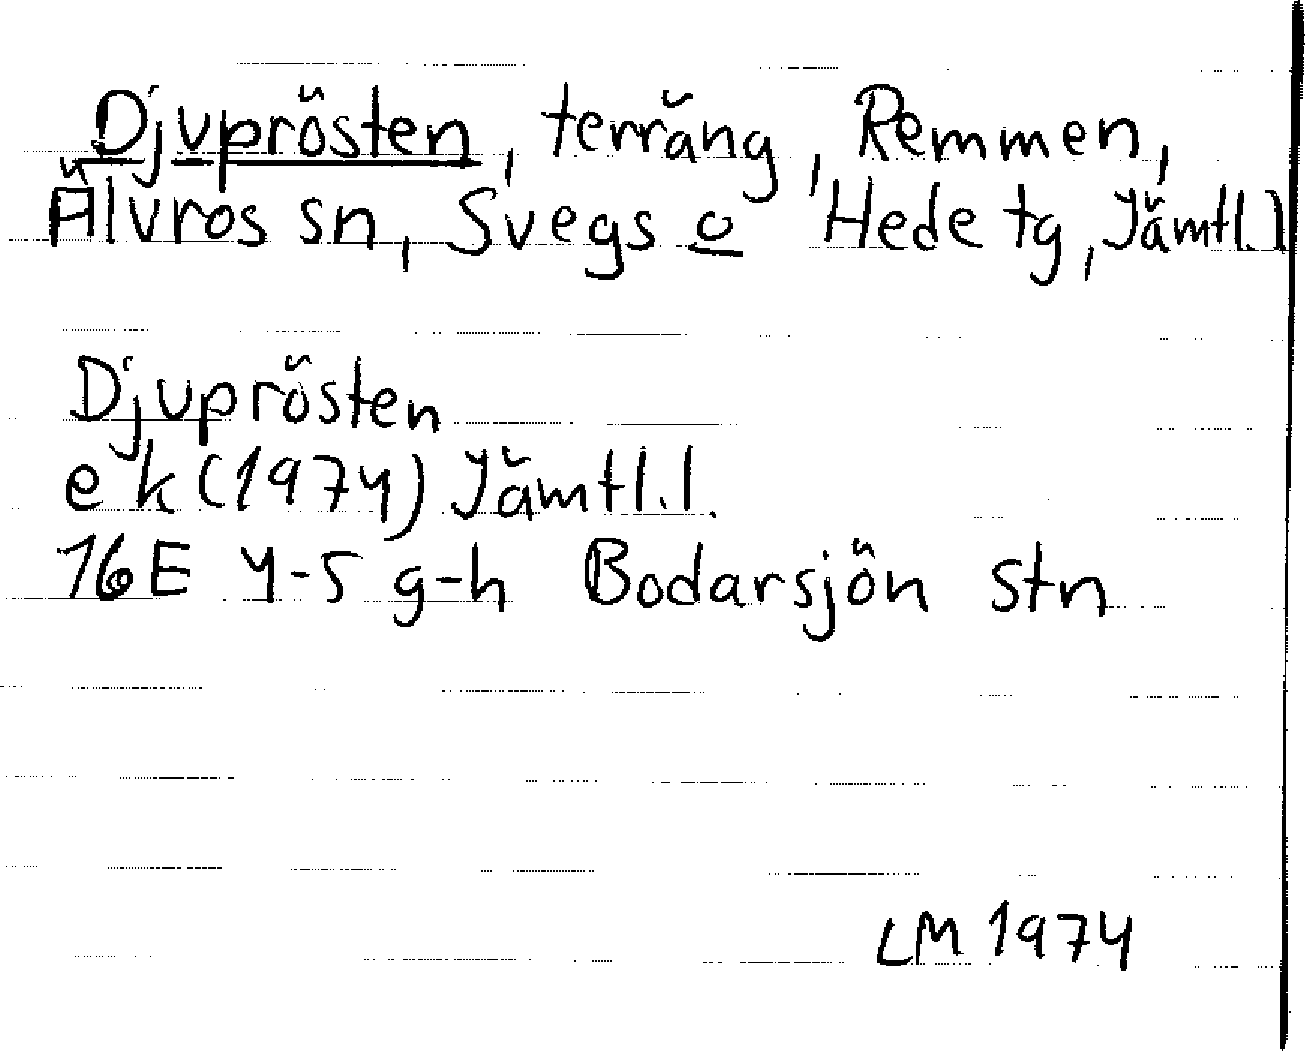 Djuprösten, terräng, Remmen,
Älvros sn, Svegs o Hede tg, Jämtl. l
Djuprösten
ek (1974) Jämtl. l.
16E 4-5 g-h Bodarsjön stn
LM 1974